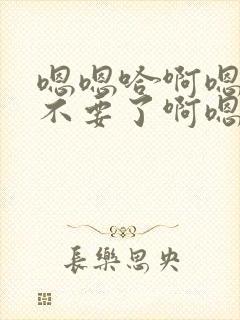 嗯嗯哈啊嗯
不要了啊嗯
長樂思央